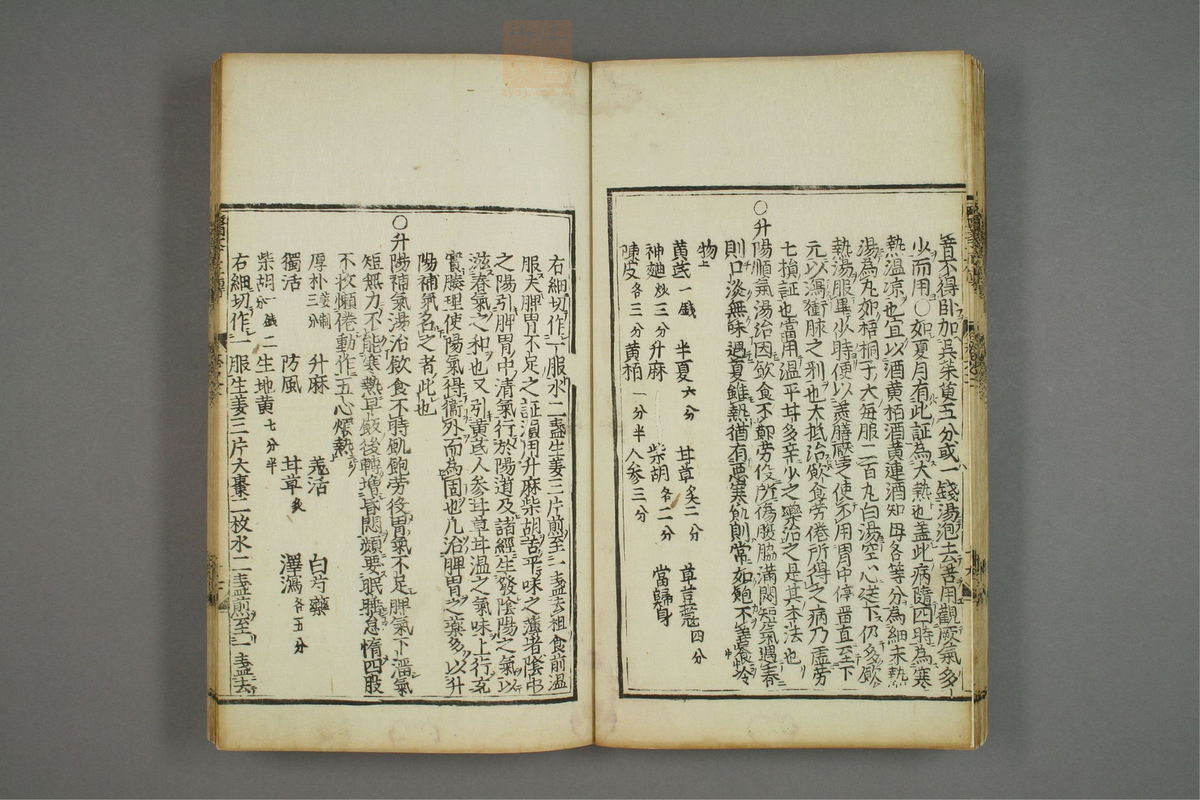 吾不得卧加吳茱萸五分或一錢湯泡去苦用觀厥氣多
少而用〇如夏月有此証為大熱也盖此病隨四時為寒
熱温凉也宜以酒黄栢酒黄連酒知母各等分為細末熱
湯為丸如梧桐子大每服二百丸白湯空心送下仍多飲
熱湯服畢少時便以羙膳壓之使不用胃中停畱直至下
元以瀉衝脉之邪也大抵治飲食劳倦所得之病乃虚劳
七損証也當用温平甘多辛少之藥治之是其本法也
〇升陽順氣湯治因飲食不節劳役所傷腹脇滿悶短氣遇春
則口淡無味遇夏雖熱猶有惡寒飢則常如飽不喜食冷
物
黄芪一錢 半夏六分 甘草炙二分 草荳蔻四分
神麯炒三分 升麻 柴胡各二分 當歸身
陳皮各三分 黄栢一分半 人参三分
右細切作一服水二盞生姜三片煎至一盞去柤食前温
服夫脾胃不足之証須用升麻柴胡苦平味之薄者陰中
之陽引脾胃中清氣行於陽道及諸經生發陰陽之氣以
滋春氣之和也又引黄芪人参甘草甘温之氣味上行充
實腠理使陽氣得衞外而為固也凡治脾胃之藥多以升
陽補氣名之者此也
〇升陽補氣湯治飲食不時飢飽劳役胃氣不足脾氣下溜氣
短無力不能寒熱早飯後轉增昏悶頻要眠睡怠惰四肢
不收懶倦動作五心煩熱
厚朴姜制三分 升麻 羗活 白芍藥
獨活 防風 甘草炙 澤瀉各五分
柴胡一錢二分 生地黄七分半
右細切作一服生姜三片大棗二枚水二盞煎至一盞去